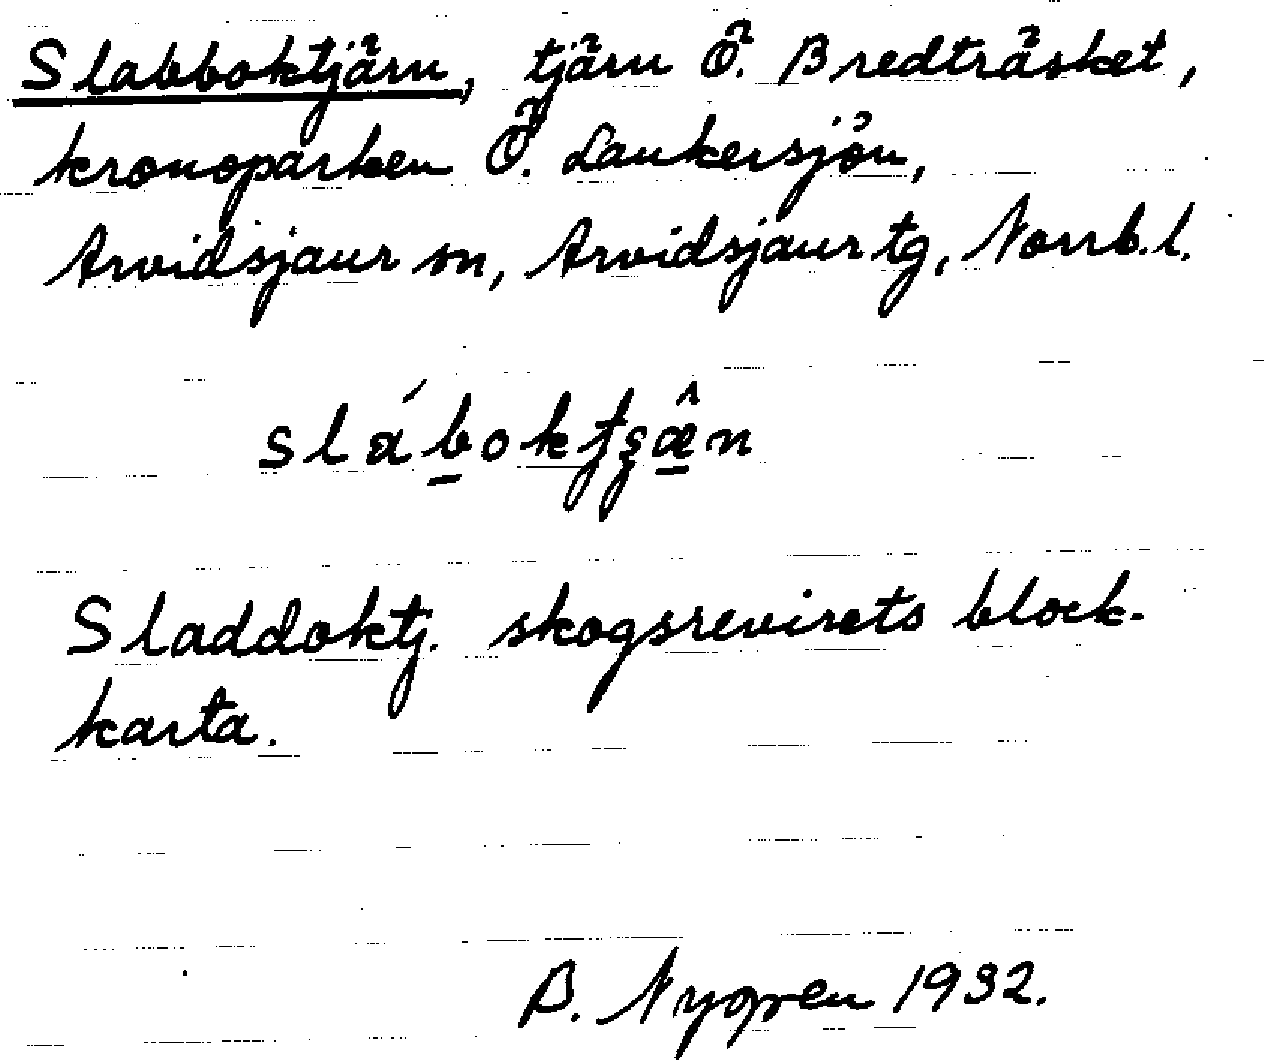 Slabboktjärn, tjärn Ö. Bredträsket,
kronoparken Ö. Laukersjön,
Arvidsjaur sn, Arvidsjaur tg, Norrb.l.
sláboktʂæ̂n
Sladdoktj. skogsrevirets block-
karta.
B. Nygren 1932.